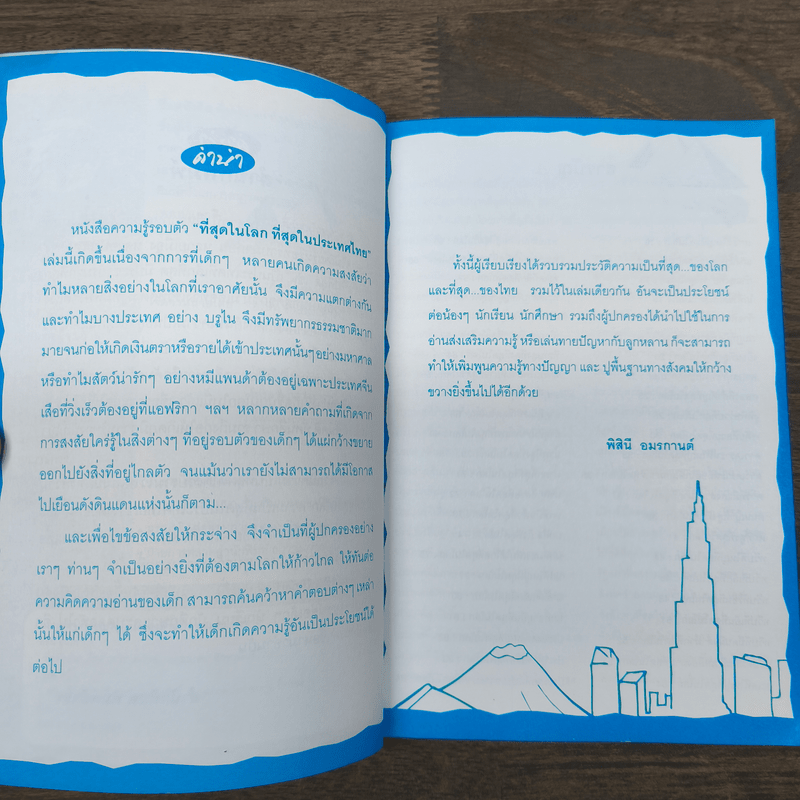 คำนำ
หนังสือความรู้รอบตัว "ที่สุดในโลก ที่สุดในประเทศไทย"
เล่มนี้เกิดขึ้นเนื่องจากการที่เด็กๆ หลายคนเกิดความสงสัยว่า
ทำไมหลายสิ่งอย่างในโลกที่เราอาศัยนั้น จึงมีความแตกต่างกัน
และทำไมบางประเทศ อย่าง บรูไน จึงมีทรัพยากรธรรมชาติมาก
มายจนก่อให้เกิดเงินตราหรือรายได้เข้าประเทศนั้นๆอย่างมหาศาล
หรือทำไมสัตว์น่ารักๆ อย่างหมีแพนด้าต้องอยู่เฉพาะประเทศจีน
เสือที่วิ่งเร็วต้องอยู่ที่แอฟริกา ฯลฯ หลากหลายคำถามที่เกิดจาก
การสงสัยใคร่รู้ในสิ่งต่างๆ ที่อยู่รอบตัวของเด็กๆ ได้แผ่กว้างขยาย
ออกไปยังสิ่งที่อยู่ไกลตัว จนแม้นว่าเรายังไม่สามารถได้มีโอกาส
ไปเยือนดังดินแดนแห่งนั้นก็ตาม...
และเพื่อไขข้อสงสัยให้กระจ่าง จึงจำเป็นที่ผู้ปกครองอย่าง
เราๆ ท่านๆ จำเป็นอย่างยิ่งที่ต้องตามโลกให้ก้าวไกล ให้ทันต่อ
ความคิดความอ่านของเด็ก สามารถค้นคว้าหาคำตอบต่างๆ เหล่า
นั้นให้แก่เด็กๆ ได้ ซึ่งจะทำให้เด็กเกิดความรู้อันเป็นประโยชน์ได้
ต่อไป
ทั้งนี้ผู้เรียบเรียงได้รวบรวมประวัติความเป็นที่สุด...ของโลก
และที่สุด...ของไทย รวมไว้ในเล่มเดียวกัน อันจะเป็นประโยชน์
ต่อน้องๆ นักเรียน นักศึกษา รวมถึงผู้ปกครองได้นำไปใช้ในการ
อ่านส่งเสริมความรู้ หรือเล่นทายปัญหากับลูกหลาน ก็จะสามารถ
ทำให้เพิ่มพูนความรู้ทางปัญญา และ ปูพื้นฐานทางสังคมให้กว้าง
ขวางยิ่งขึ้นไปได้อีกด้วย
พิสินี อมรกานต์